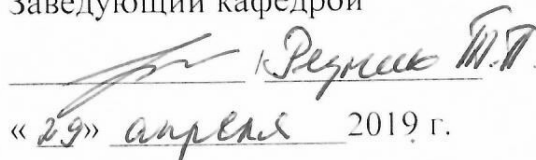 Заведующий кафедрой
/ Резник Т.П.
«29» апреля 2019 г.